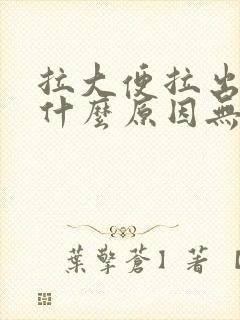 拉大便拉出
什麼原因無
葉擎蒼】著【